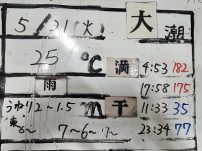 5/21(火) 大潮
25℃ 満 4:53 182
雨 17:58 175
うねり2~1.5m 干 11:33 35
東6~ 7~6~ 7~ 23:34 77